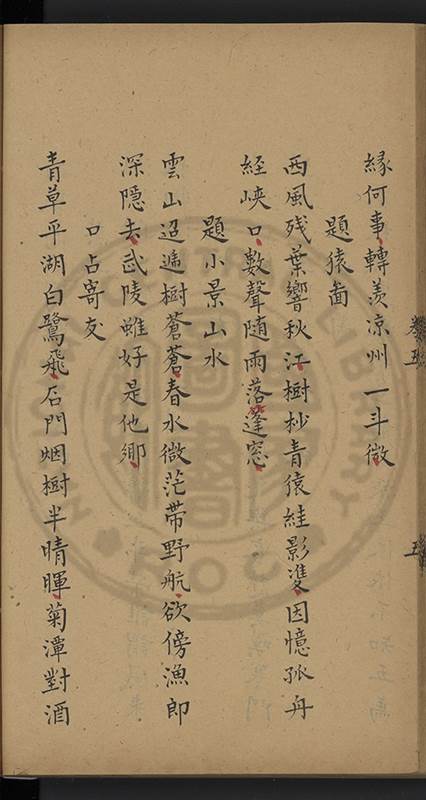 緣何事轉羡凉州一斗微
題猿畵
西風残葉響秋江樹杪青猿絓影雙因憶孤舟
經峡口數聲随雨落篷窓
題小景山水
雲山迢遞樹蒼蒼春水微茫帶野航欲傍漁郎
深隠去武陵雖好是他鄉
口占寄友
青草平湖白鷺飛石門烟樹半晴暉菊潭對酒
卷五
五